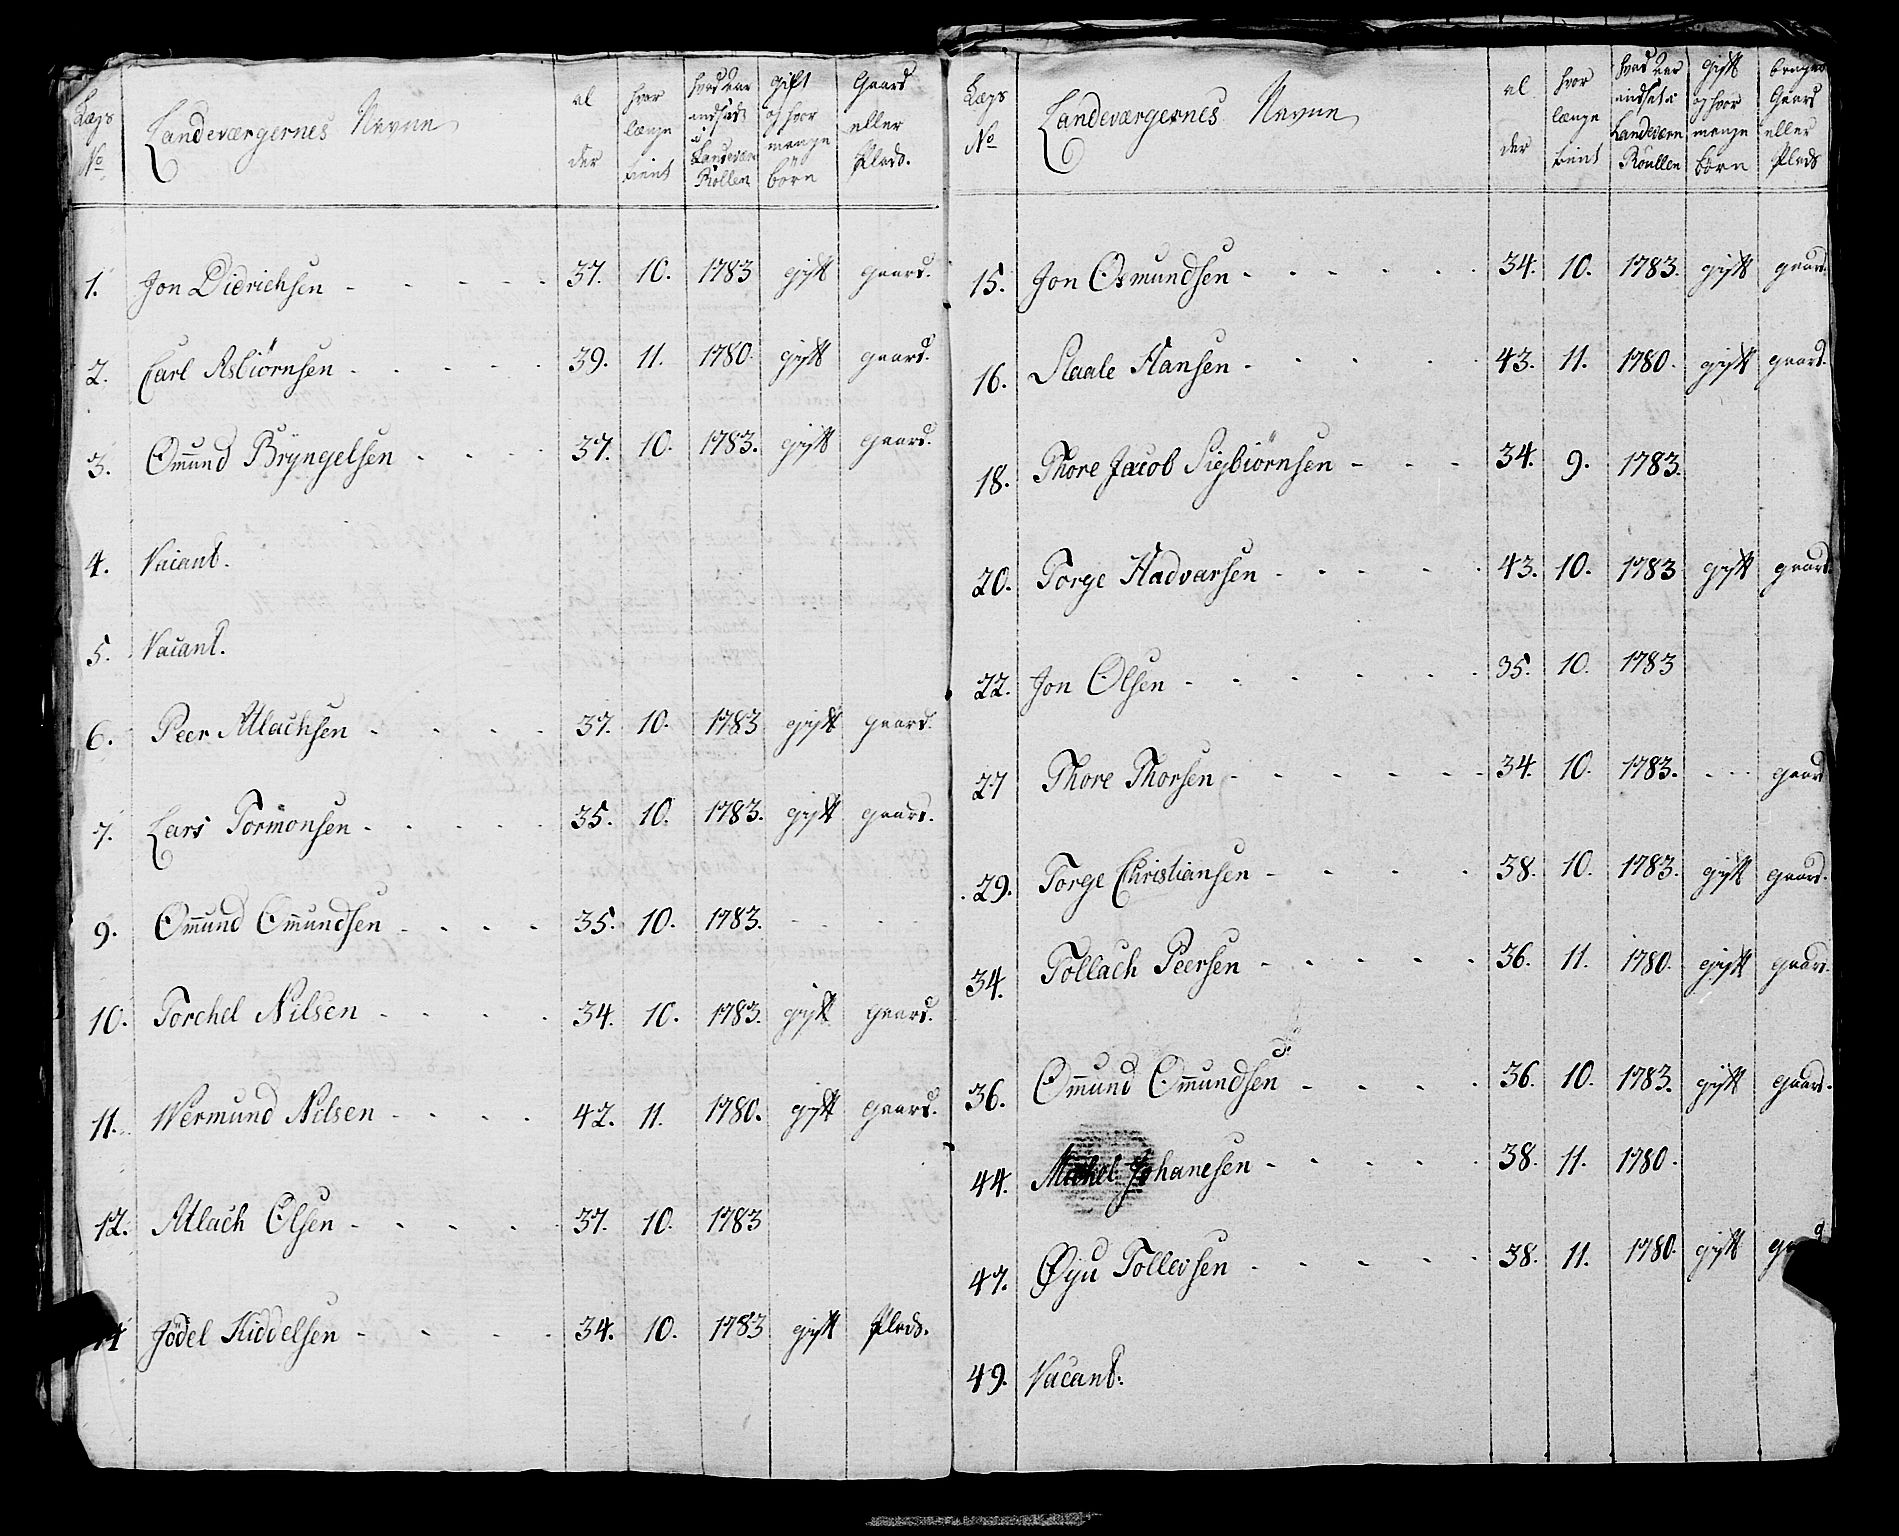 Lægs No | Landeværgernes Navne | alder | hvor længe tient | hvad Aar indsadt i Landeværn Rollen | gift og hvor mange börn | Gaard eller Plads.
1. Jon Didrichsen - - - - - 37. 10. 1783 gift gaard.
2. Carl Asbiörnsen - - - - - 39. 11. 1780. gift gaard.
3. Om̅und Bryngelsen - - - - 37. 10. 1783. gift gaard.
4. Vacant.
5. Vacant.
6. Peer Atlachsen - - - - 37. 10. 1783 gift gaard.
7. Lars Tormonsen - - - - - 35. 10. 1783. gift gaard.
9. Om̅und Om̅undsen - - - - 35. 10. 1783. - -
10. Torchel Nilsen - - - - 34. 10. 1783. gift gaard.
11. Wermund Nilsen - - - - 42. 11. 1780. gift gaard.
12. Atlach Olsen - - - - - 37. 10. 1783
14 Jödel Kiddelsen - - - - 34. 10. 1783 gift Plads.
Lægs No | Landeværgernes Navne | alder | hvor længe tient | hvad Aar indsat i Landeværn Roullen | gift og hvor mange börn | bruger Gaard eller Plads
15. Jon Osmundsen - - - - - 34. 10. 1783. gift gaard.
16. Staale Hansen - - - - 43. 11. 1780. gift gaard.
18. Thore Jacob Sigbiörnsen - - - 34. 9. 1783.
20. Torge Hadvarsen - - - - - 43. 10. 1783 gift gaard.
22. Jon Olsen - - - - - - 35. 10. 1783
27 Thore Thorsen - - - - - - 34. 10. 1783. - - - gaard
29. Torge Christiansen - - - - 38. 10. 1783. gift gaard.
34. Tollach Peersen - - - - - 36. 11. 1780. gift gaard.
36. Om̅und Om̅undsen - - - - 36. 10. 1783. gift gaard.
44. Michel Johanesen - - - - - 38. 11. 1780.
47. Øyu Tollevsen - - - - - 38. 11. 1780. gift
49. Vacant.